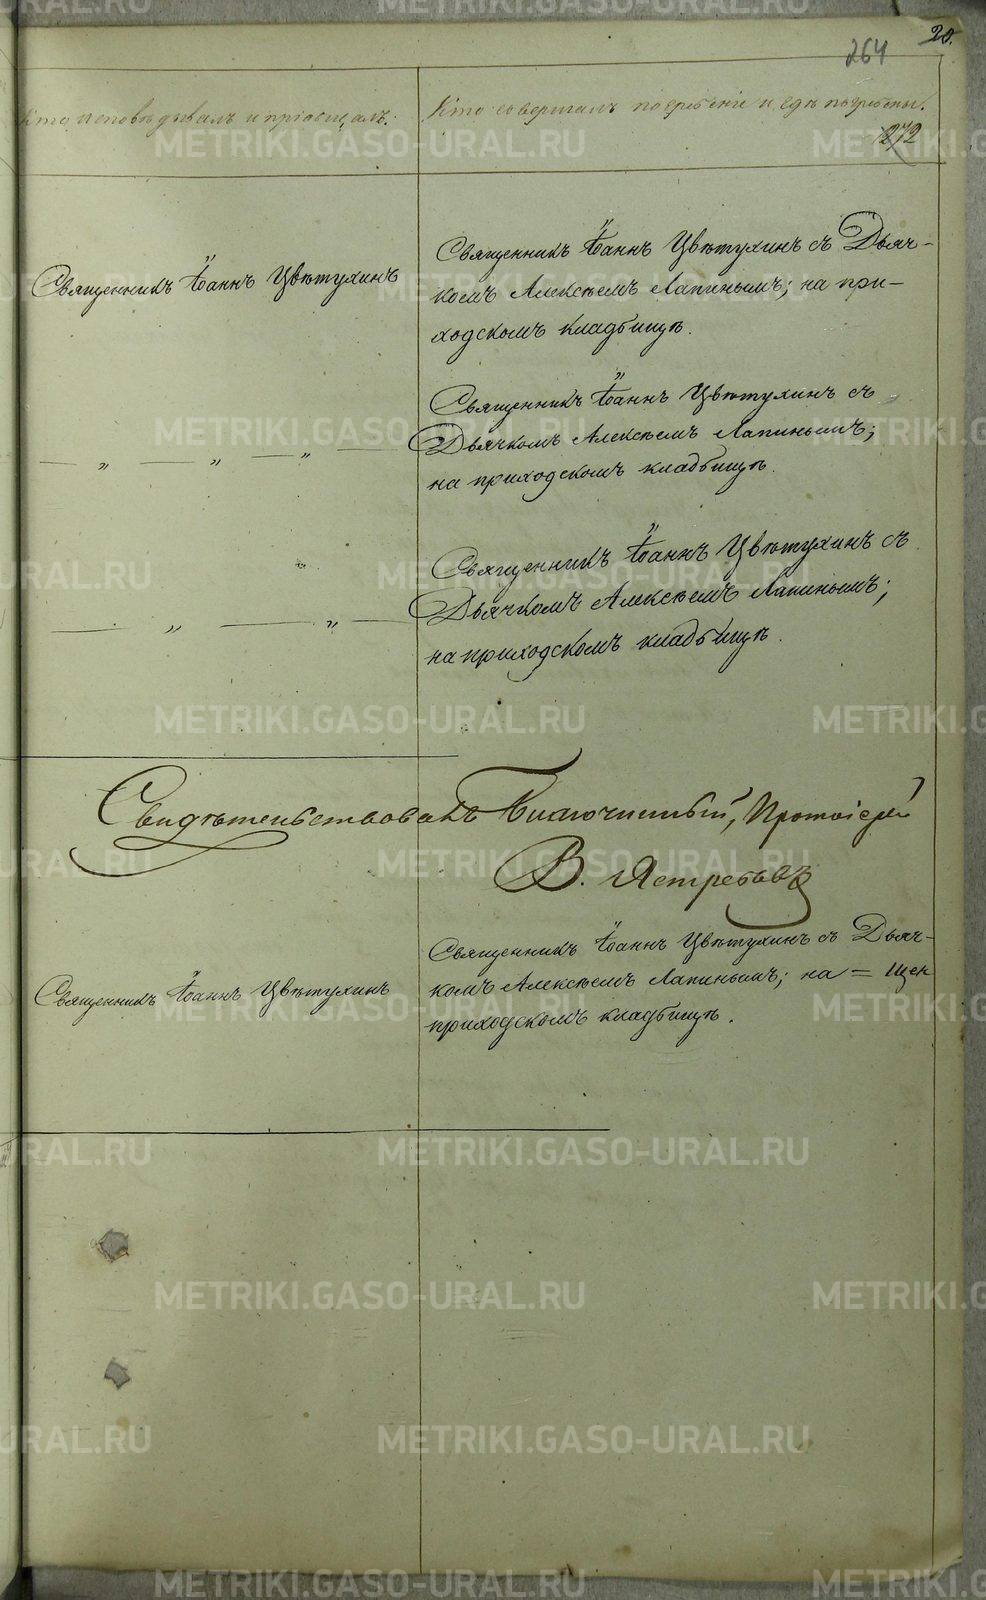 264
20.
Кто исповѣдывалъ и пріобщалъ.
Кто совершалъ погребеніе и гдѣ погребены.
272
Священникъ Іоаннъ Цвѣтухинъ
Священникъ Іоаннъ Цвѣтухинъ съ Дьяч-
комъ Алексѣемъ Лапинымъ; на при-
ходскомъ кладбищѣ.
— „ — „ — „ —
Священникъ Іоаннъ Цвѣтухинъ съ
Дьячкомъ Алексѣемъ Лапинымъ;
на приходскомъ кладбищѣ.
— „ — „ —
Священникъ Іоаннъ Цвѣтухинъ съ
Дьячкомъ Алексѣемъ Лапинымъ;
на приходскомъ кладбищѣ.
Свидѣтельствовалъ Благочинный, Протоіерей
В. Ястребовъ
Священникъ Іоаннъ Цвѣтухинъ
Священникъ Іоаннъ Цвѣтухинъ съ Дьяч-
комъ Алексѣемъ Лапинымъ; на =
приходскомъ кладбищѣ.
METRIKI.GASO-URAL.RU